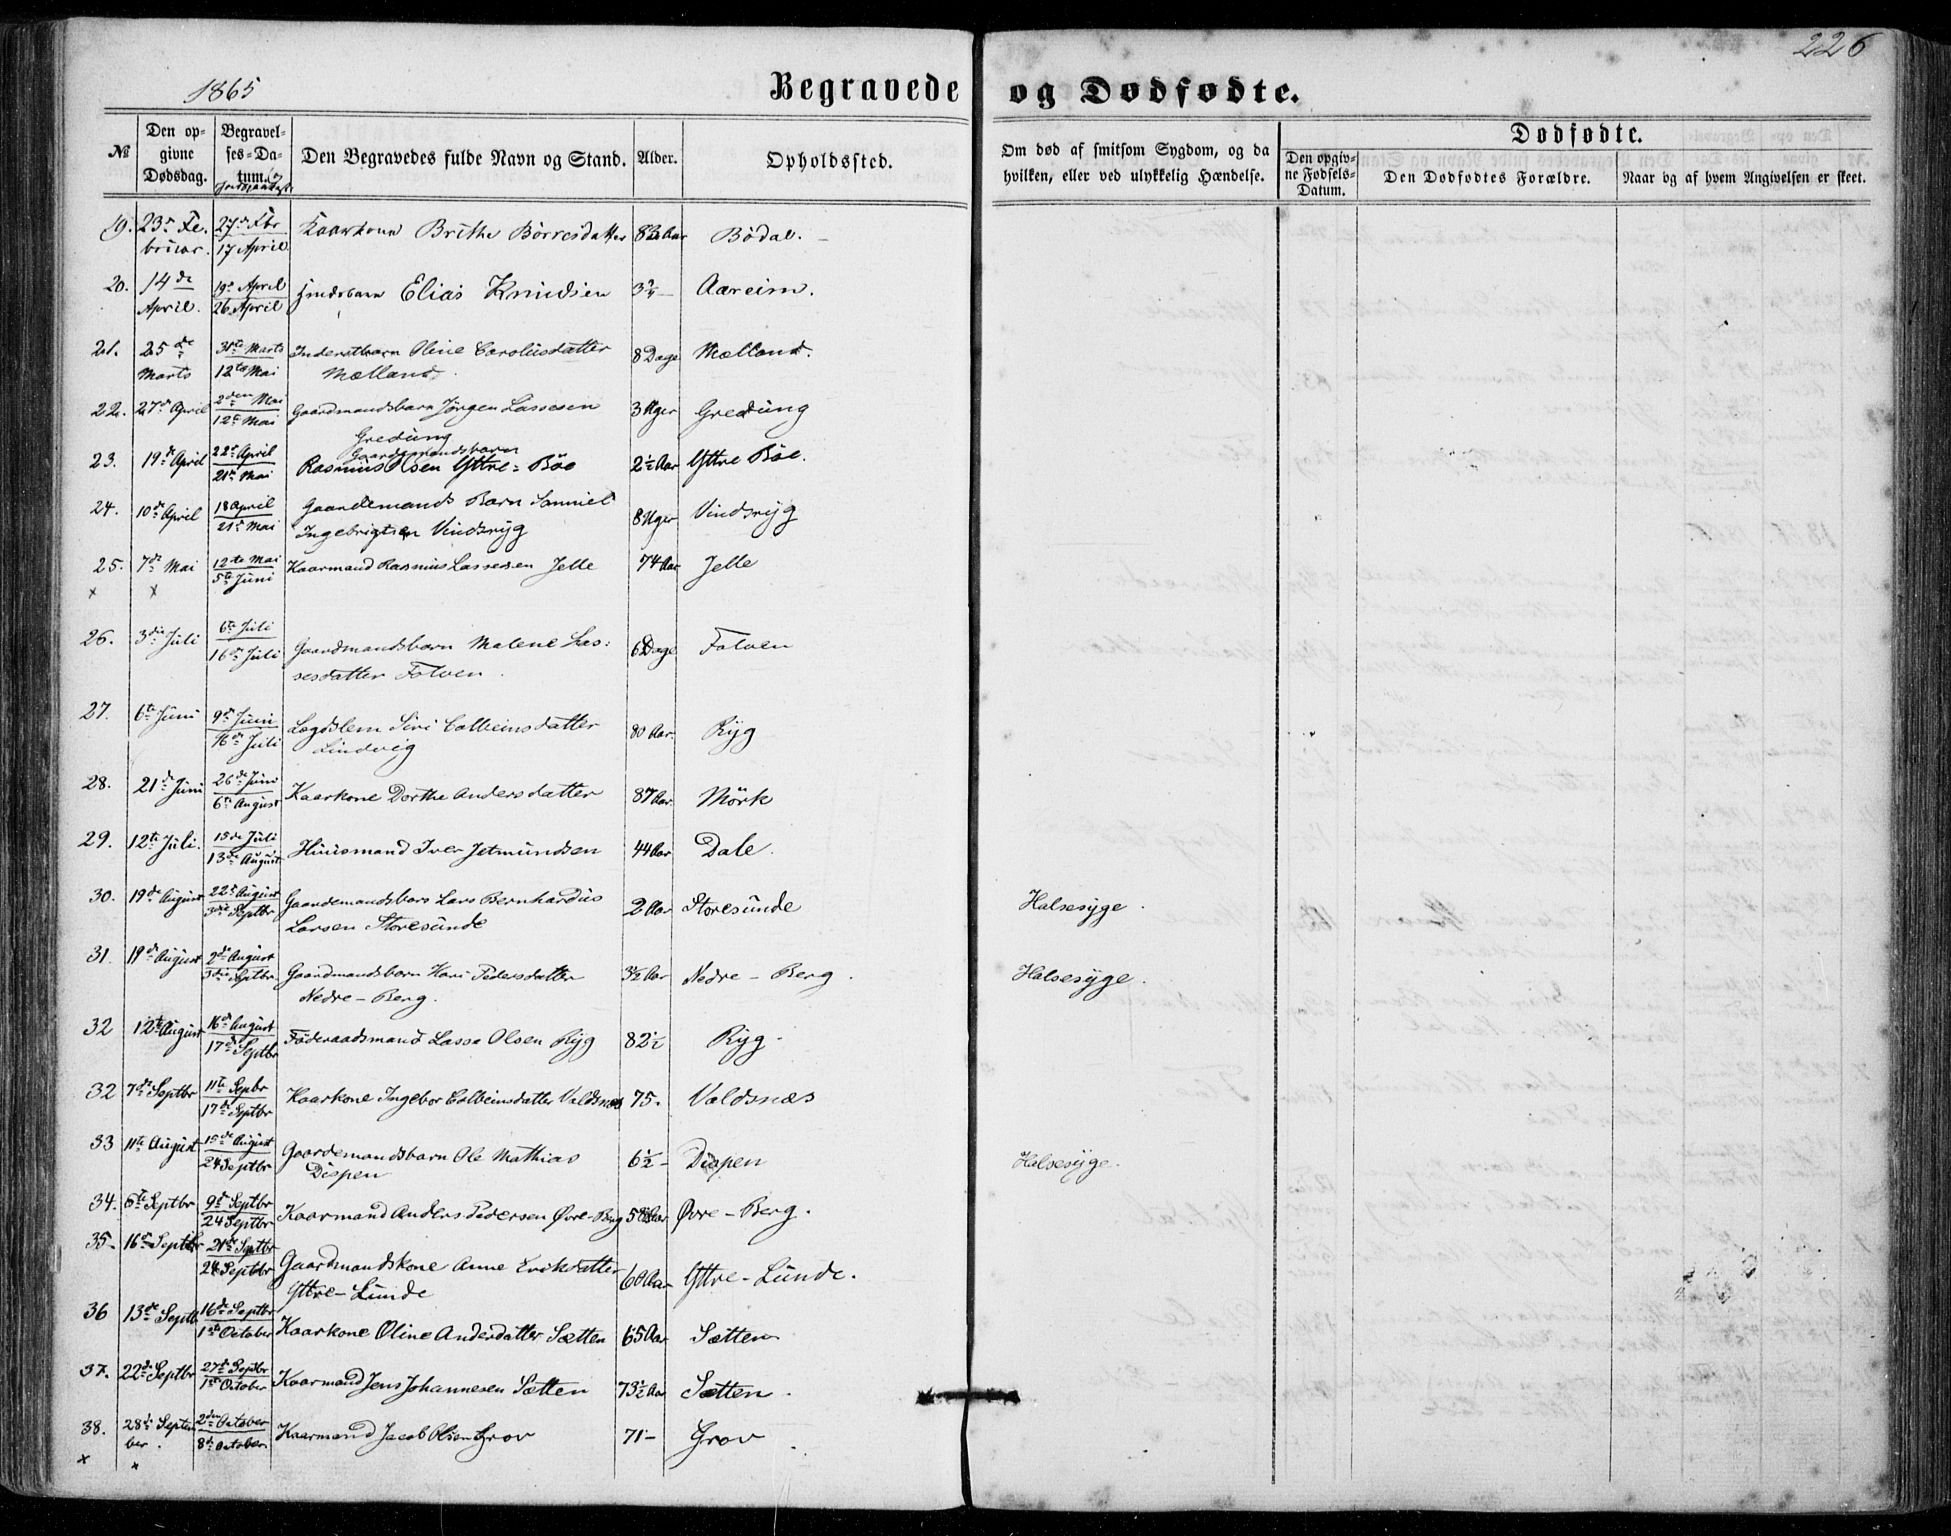 226
1865 Begravede og Dødfødte.
№ Den op-givne Dødsdag. Begravel-ses-Da-tum. Den Begravedes fulde Navn og Stand. Alder. Opholdssted. Om død af smitsom Sygdom, og da hvilken, eller ved ulykkelig Hændelse. Dødfødte. Den opgiv-ne Fødsels-Datum. Den Dødfødtes Forældre. Naar og af hvem Angivelsen er skeet.
19. 23de Fe- 27de Fbr Kaarkone Brithe Börresdatter Aar Bödal. -
bruar. 17 April
20. 14de 19de April Elias Knudsen 3 Aareim.
April. 26 April
21. 25de 31te Marts Inderstbarn Oline Carolusdatter 8 Dage Mælland.
Marts 12te Mai Mælland.
22. 27de April 2den Mai Gaardmandsbarn Jörgen Lassesen 3 Uger Gredung
12te Mai Gredung
23. 19de April 22de April Gaardemandsbarn
21de Mai Rasmus Olsen Yttre-Böe 2½ Aar Yttre Böe.
24. 10de April 18 April Gaardemands Barn Samuel 8 Uger Vindsryg
21de Mai Ingebrigtsen Vindsryg
25. 7de Mai 12te Mai Kaarmand Rasmus Lassesen Jelle 74 Aar Jelle
x x 5te Juni
26. 3die Juli 6te Juli Gaardmandsbarn Malene Las: 6 Dage Folven
16de Juli sesdatter Folven.
27. 6te Juni 9de Juni Lægdslem Siri Colbeinsdatter 80 Aar. Ryg
16de Juli Lindvig
28. 21de Juni 26de Juni Kaarkone Dorthe Andersdatter 87 Aar. Mörk
6te August
29. 12te Juli. 15de Juli Huusmand Iver Jetmundsen 44 Aar Dale.
13de August
30. 19de August 22de August Gaardemandsbarn Lars Bernhardus 2 Aar Storesunde Halsesyge.
3die Septbr Larsen Storesunde
31. 19de August 2de August Gaardmandsbarn Kari Pedersdatter 3½ Aar Nedre-Berg. Halsesyge.
3die Septbr Nedre-Berg.
32 12te August 16de August Föderaadsmand Lasse Olsen Ryg 82½ Ryg.
17de Septbr
32 7de Septbr 11te Septbr Kaarkone Ingebor Colbeinsdatter Valdsnæs 75. Valdsnæs
17de Septbr
33 11te August 15de August Gaardemandsbarn Ole Mathias 6½ - Dispen Halsesyge.
24 Septbr Dispen
34. 6te Septbr 9de Septbr Kaarmand Anders Pedersen Øvre-Berg Aar Øvre-Berg.
24 Septbr
35. 16de Septbr 21de Septbr Gaardmandskone Anne Eriksdatter 60 Aar Yttre-Lunde.
24 Septbr Yttre-Lunde
36 13de Septbr 16de Septbr Kaarkone Oline Andersdatter Sætten 65 Aar Sætten
1ste October
37. 22de Septbr 27de Septbr Kaarmand Jens Johannesen Sætten 73½ Aar Sætten.
1ste October
38. 28de Septem 2den October Kaarmand Jacob Olsen Grov 71 - Grov
x ber. x 8de October